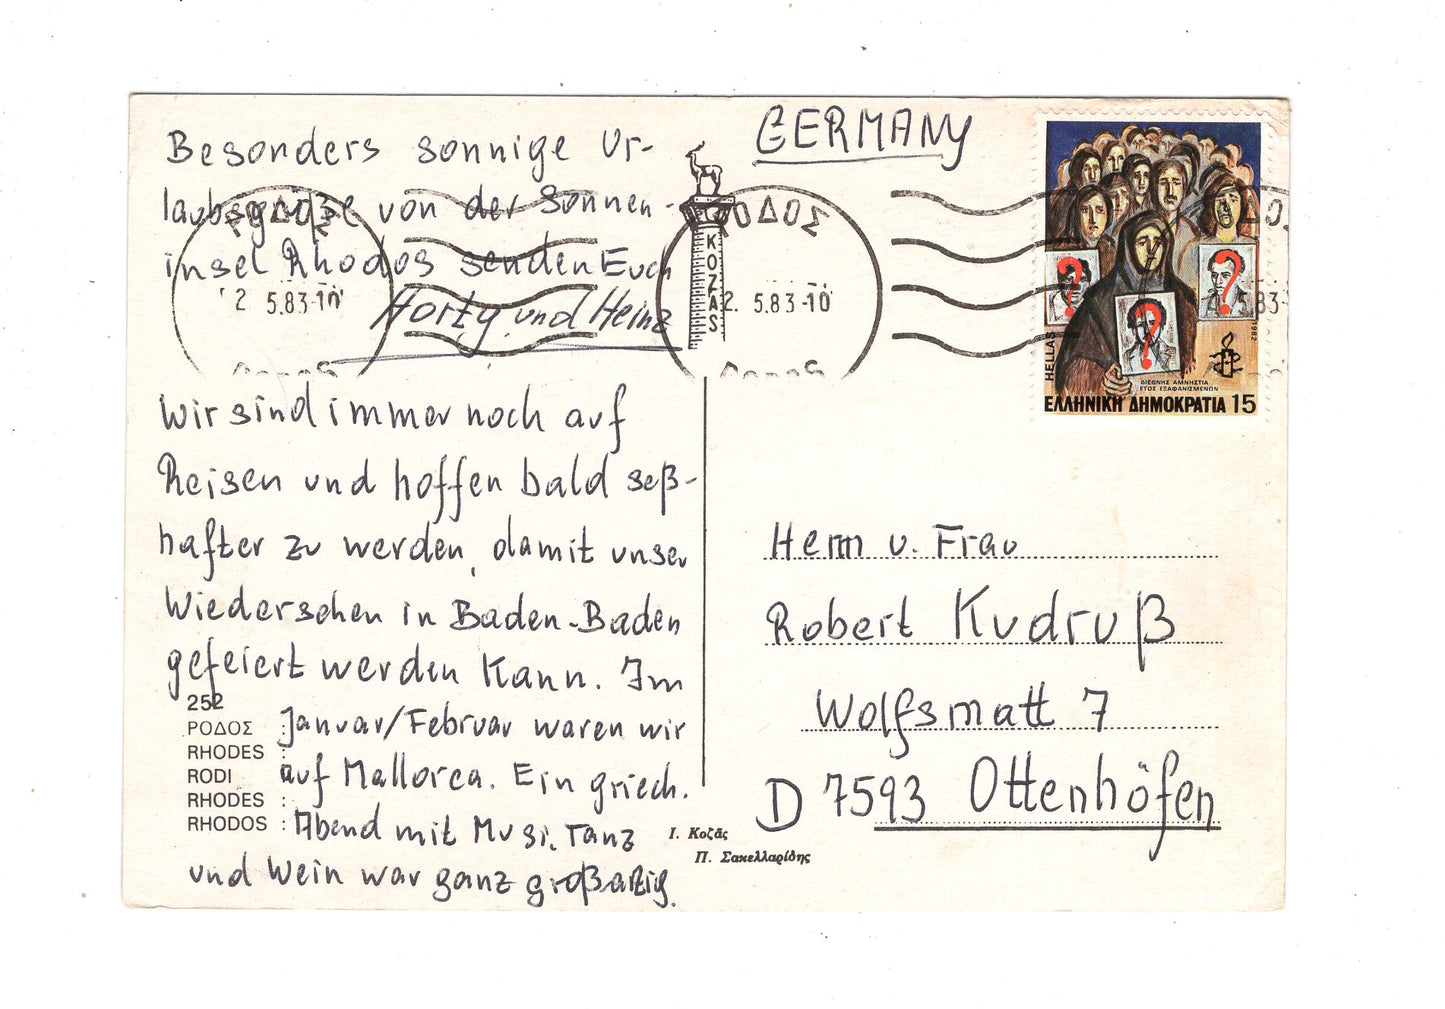 Besonders sonnige Ur-
laubsgrüße von der Sonnen-
insel Rhodos senden Euch
Horty und Heinz
Wir sind immer noch auf
Reisen und hoffen bald seß-
hafter zu werden, damit unser
Wiedersehen in Baden-Baden
gefeiert werden kann. Im
Januar/Februar waren wir
auf Mallorca. Ein griech.
Abend mit Musi. Tanz
und Wein war ganz großartig.
252
ΡΟΔΟΣ :
RHODES :
RODI
RHODES :
RHODOS :
ΡΟΔΟΣ
2 5.83-10
KOZAS
ΡΟΔΟΣ
2. 5.83-10
Ι. Κοζᾶς
Π. Σακελλαρίδης
GERMANY
HELLAS
1982
ΔΙΕΘΝΗΣ ΑΜΝΗΣΤΙΑ
ΕΤΟΣ ΕΞΑΦΑΝΙΣΜΕΝΩΝ
ΕΛΛΗΝΙΚΗ ΔΗΜΟΚΡΑΤΙΑ 15
Herrn u. Frau
Robert Kudruß
Wolfsmatt 7
D 7593 Ottenhöfen